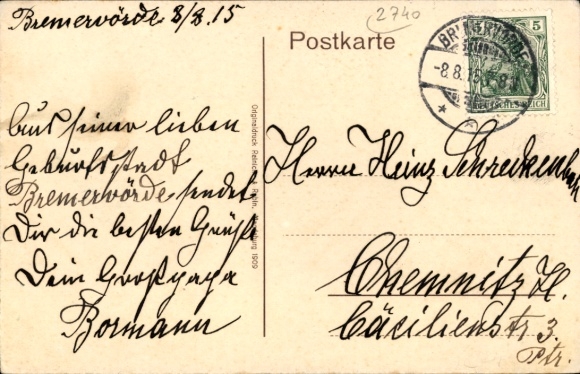 Bremervörde 8/8.15
2740
Postkarte
5
DEUTSCHES REICH
BREMERVÖRDE
-8.8.15
Aus seiner lieben
Geburtsstadt
Bremervörde sendet
Dir die besten Grüße
Dein Großpapa
Bormann
Originaldruck
1909
Herrn Heinz Schreckenbach
Chemnitz H.
Cäcilienstr 3.
Ptr.